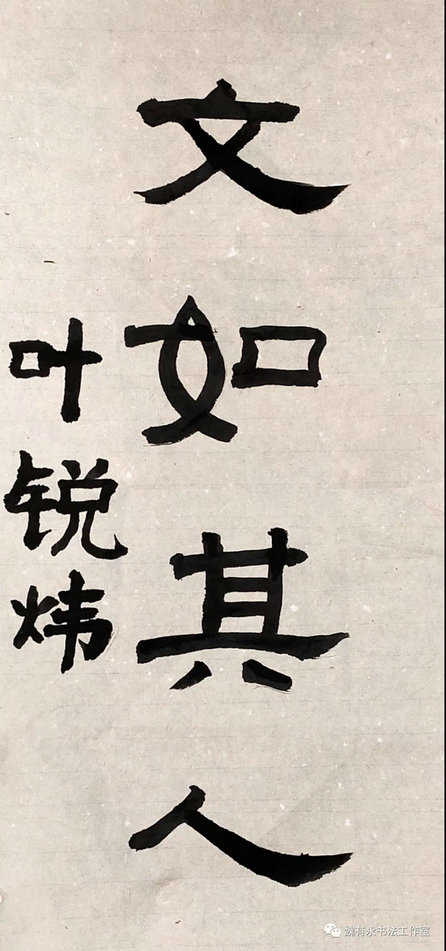 文如其人
叶锐炜
魏有永书法工作室